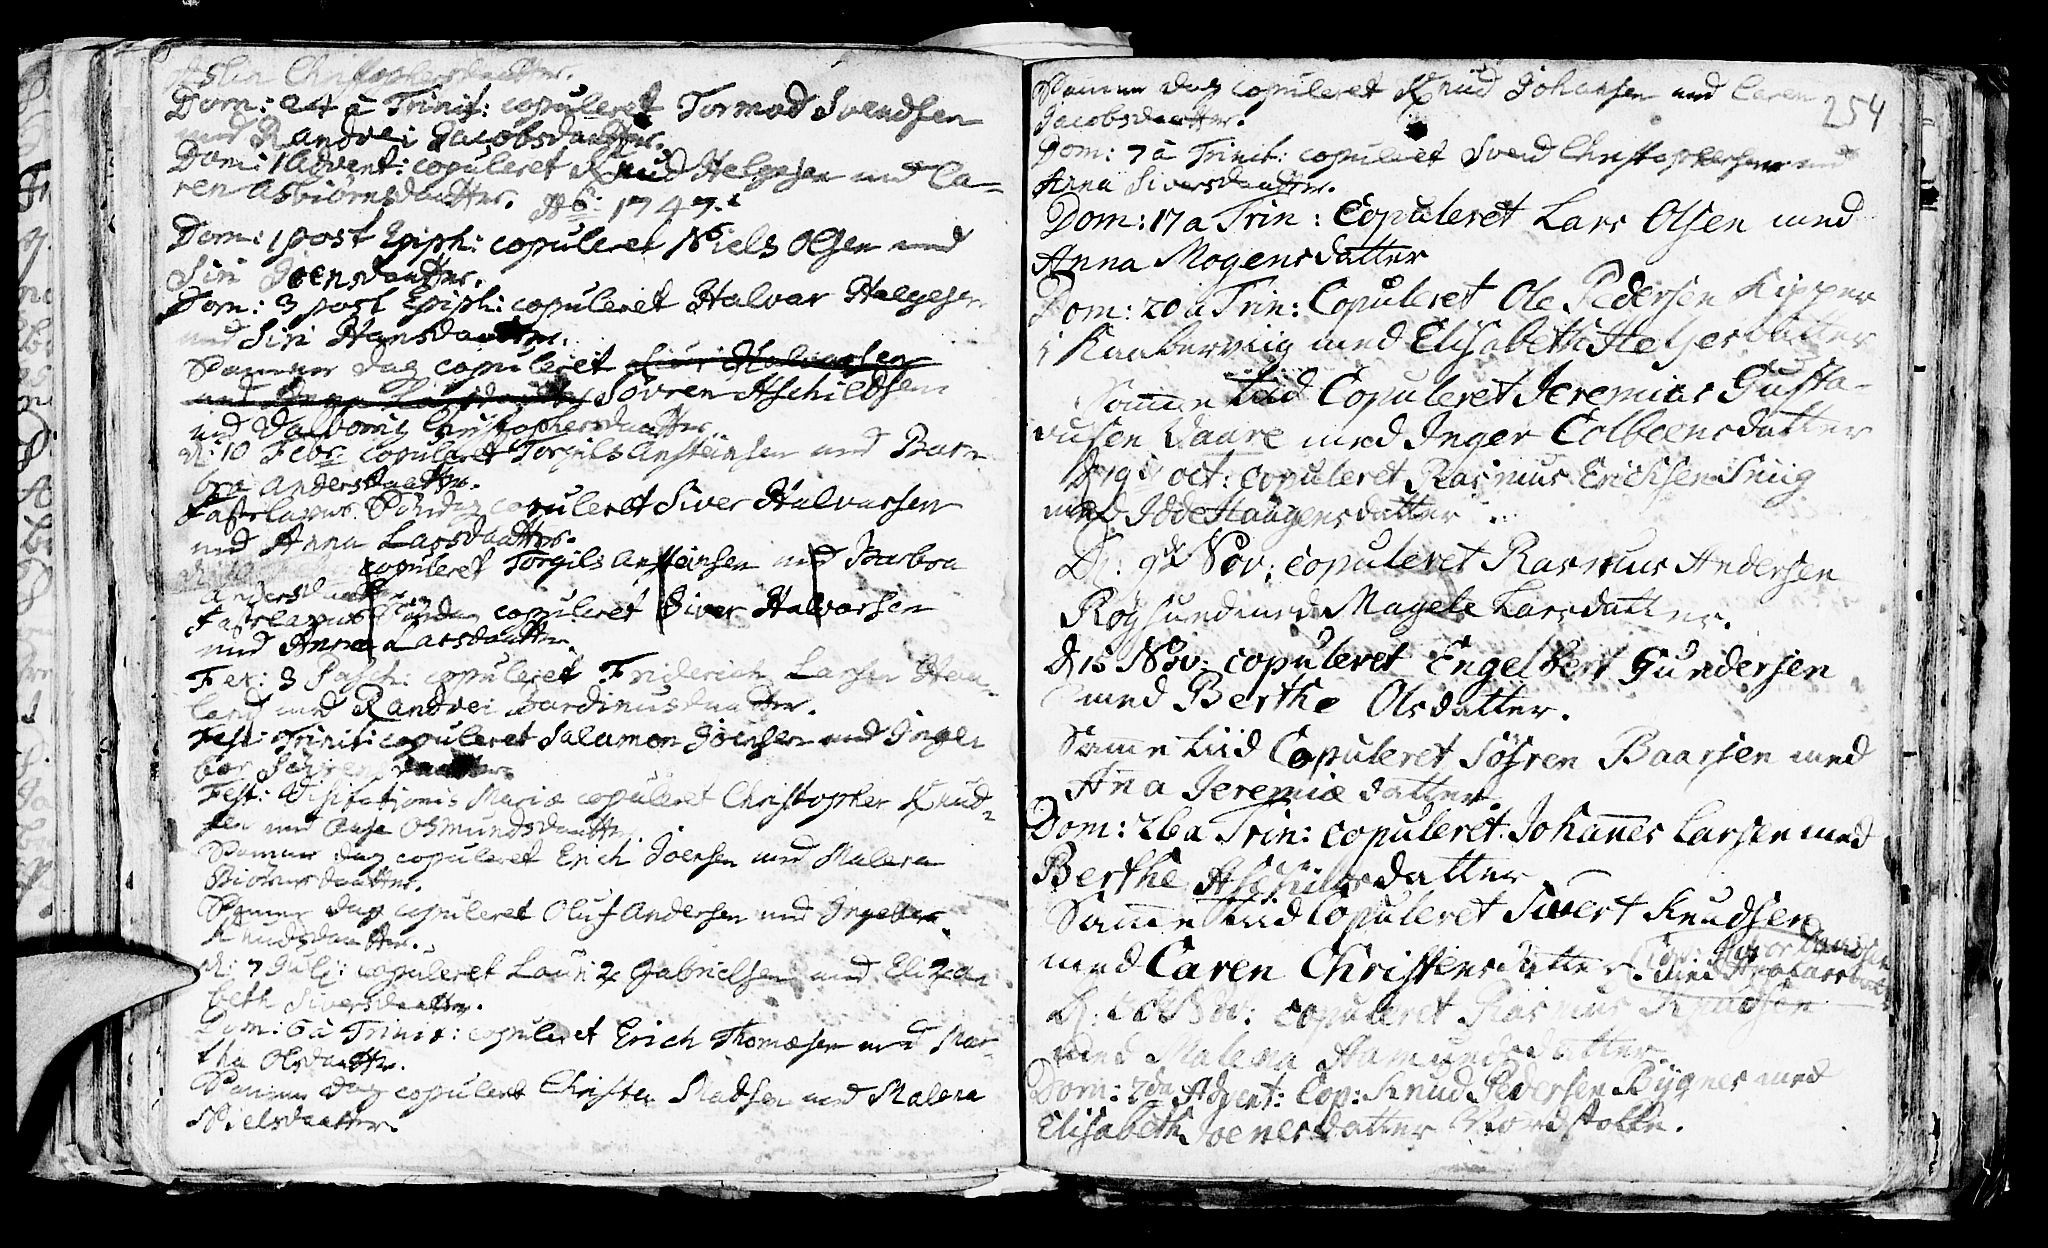 Aslen Christophersdaatter.
Dom: 24 à Trinit: copuleret Tormod Svendsen
med Randvei Jacobsdaatter.
Dom: 1 Advent: copuleret Knud Helgesen med Ca-
ren Asbiörnsdaatter. Ao 1747.
Dom: 1 post Epiph: copuleret Niels Olsen med
Siri Joensdaatter.
Dom: 3 post Epiph: copuleret Halvar Helgesen
med Siri Hansdaatter.
Samme dag copuleret Halvorsen
med Anna Larsdaatter Sövren Aschildsen
med Dalborig Christophersdaatter.
d: 10 Febr: copuleret Torgils Ansteinsen med Bar-
bra Andersdaatter.
Fastelavns Söndag copuleret Siver Halvarsen
med Anna Larsdaatter.
copuleret Torgils Ansteinsen med Barbra
Andersdaatter
Fastelavns Söndag copuleret Siver Halvarsen
med Anna Larsdaatter.
Fer: 3 Pasch: copuleret Friderich Larsen Hau-
land med Randvei Bardinusdaatter.
Fest: Trinit: copuleret Salamon Joensen med Inge-
bor daatter.
Fest: Visitationis Mariæ copuleret Christopher Knud-
sen med Aase Osmundsdaatter
Samme dag copuleret Erich Joensen med Malena
Biörnsdaatter.
Samme dag copuleret Oluf Andersen med Ingebor
Knudsdaatter.
d: 7 Julj: copuleret Lauritz Gabrielsen med Eliza-
beth Siversdaatter.
Dom: 6 à Trinit: copuleret Erich Thomæsen med Mar-
tha Olsdaatter.
Samme dag copuleret Christen Madsen med Malena
Nielsdaatter.
254
Samme dag copuleret Knud Johansen med Caren
Jacobsdaatter.
Dom: 7 à Trinit: copuleret Svend Christophersen med
Anna Siversdaatter.
Dom: 17 a Trin: Copuleret Lars Olsen med
Anna Mogensdatter
Dom: 20 a Trin: Copuleret Ole Pedersen Kipper
i med Elisabeth Heljesdatter
Samme tiid Copuleret Jeremias Gusta-
vusen Vaare med Inger Colbeensdatter
D 19 oct: copuleret Rasmus Erichsen Sniig
med Idde Haagensdatter.
D: 9de Nov: copuleret Rasmus Andersen
Rogsund med Magele Larsdatter.
D 15 Nov: copuleret Engelbert Gundersen
med Berthe Olsdatter.
Samme tiid Copuleret Söfren Baarsen med
Anna Jeremiædatter.
Dom: 26 a Trin: copuleret Johannes Larsen med
Berthe Aschildsdatter.
Samme tiid Copuleret Sivert Knudsen
med Caren Christensdatter.
Cop: Davidsen
med
D: Nov: copuleret Rasmus Knudsen
med Malena Aamundsdatter.
Dom: 2da Advent: Cop: Knud Pedersen Bÿgnes med
Elisabeth Joenesdatter Nordstokke.